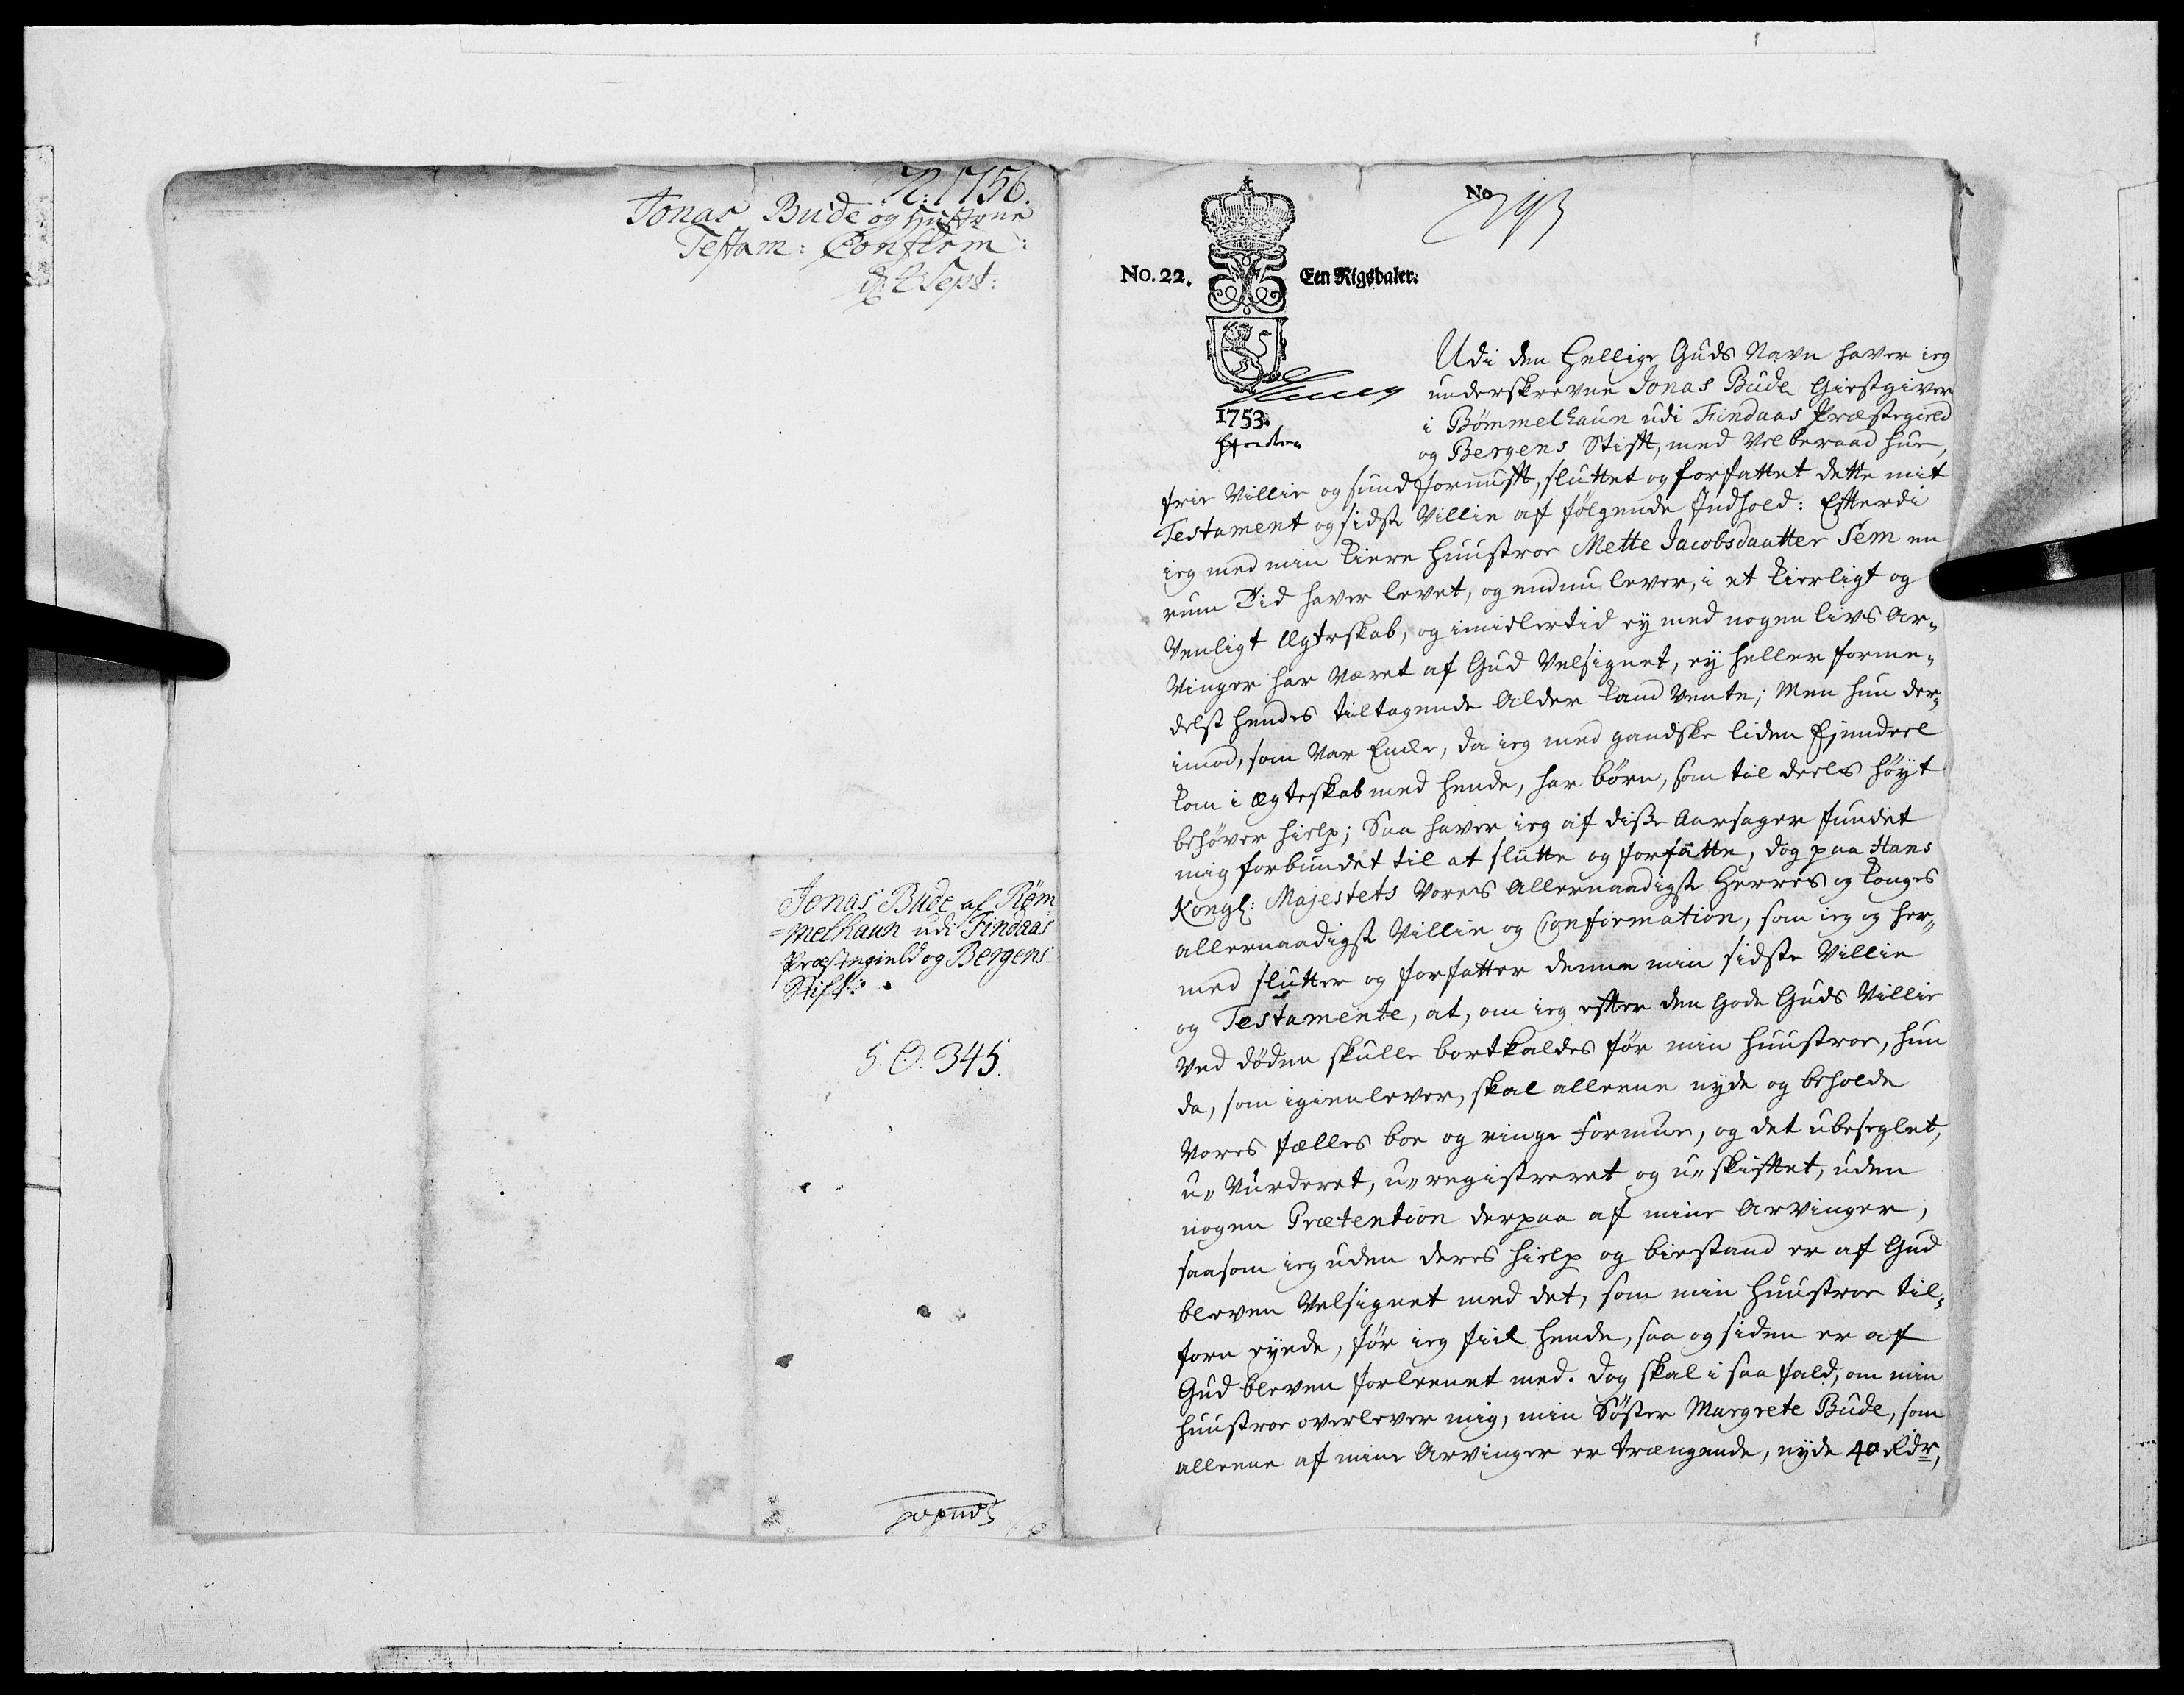 N: 1756.
Jonas Bude og Hustrue
Testam: Confirm:
d: 2 Sept:
Jonas Bude af Bøm
=melhaun udi Findaas
Præstegield og Bergens
Stift:
S. O. 345.
No
293
No. 22.
Een Rigsdaler.
1753.
Udi den Hellige Guds Navn haver ieg
underskrevne Jonas Bude Giestgiver
i Bømmelhaun udi Findaas Præstegield
og Bergens Stift, med Velberaad Hue,
frie Villie og sund Fornuft, sluttet og forfattet dette mit
Testament og sidste Villie af følgende Indhold: Efterdi
ieg med min kiere Huustroe Mette Jacobsdaatter Sem en
rum Tid haver levet, og endnu lever, i et kierligt og
Venligt Ægteskab, og imidlertid ey med nogen livs Ar„
Vinger har Været af Gud Velsignet, ey heller forme„
delst hendes tiltagende Alder kand Vente; Men hun der„
imod, som Var Enke, da ieg med gandske liden Ejendeel
kom i Ægteskab med hende, har børn, som til deels høyt
behøver hielp; Saa haver ieg af disse Aarsager fundet
mig forbundet til at slutte og forfatte, dog paa Hans
Kongl: Majestets Vores Allernaadigste Herres og Konges
allernaadigste Villie og Confirmation, som ieg og her„
med slutter og forfatter denne min sidste Villie
og Testamente, at, om ieg efter den Gode Guds Villie
Ved døden skulle bortkaldes før min Huustroe, hun
da, som igienlever, skal alleene nyde og beholde
Vores fælles boe og ringe Formue, og det ubeseglet,
u„ Vurderet, u„ registreret og u„ skiftet, uden
nogen Prætention derpaa af mine Arvinger,
saasom ieg uden deres hielp og biestand er af Gud
bleven Velsignet med det, som min Huustroe til„
forn eyede, før ieg fiik hende, saa og siden er af
Gud bleven forleenet med. Dog skal i saa fald, om min
Huustroe overlever mig, min Søster Margrete Bude, som
alleene af mine Arvinger er trængende, nyde 40 Rdr,